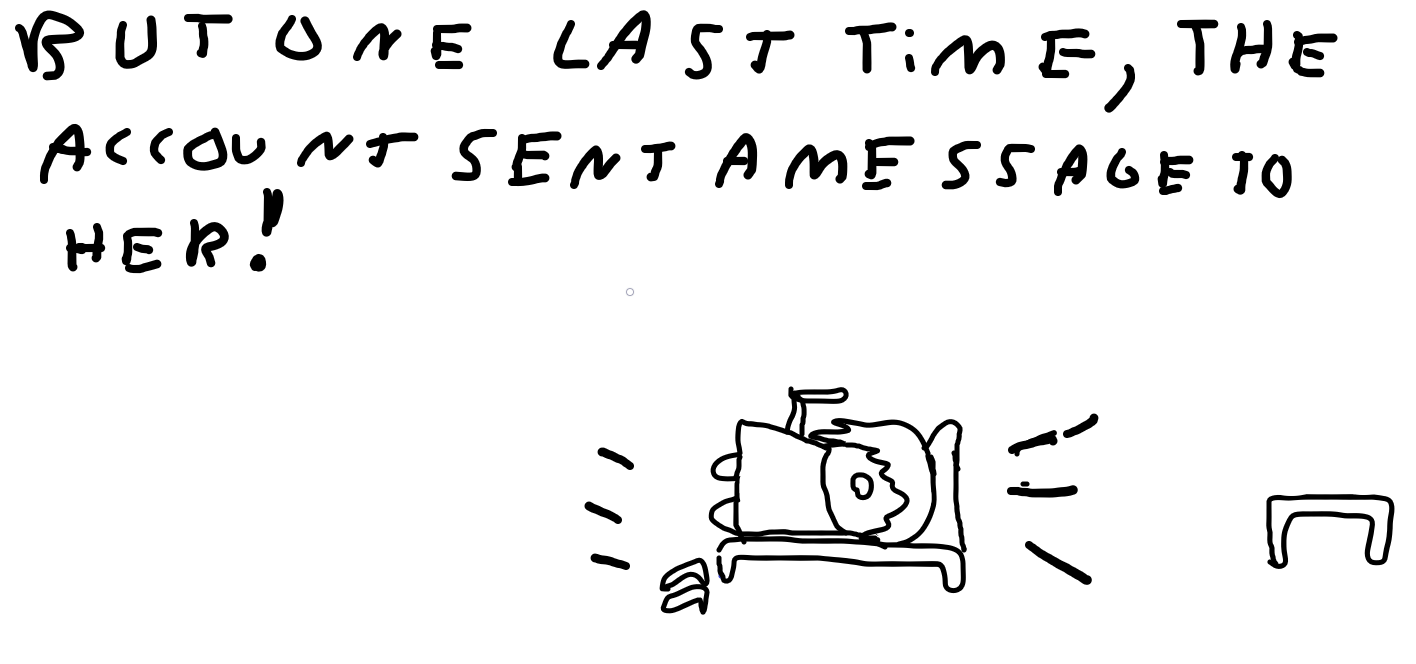 BUT ONE LAST TiME, THE
ACCOUNT SENT A MESSAGE TO
HER!